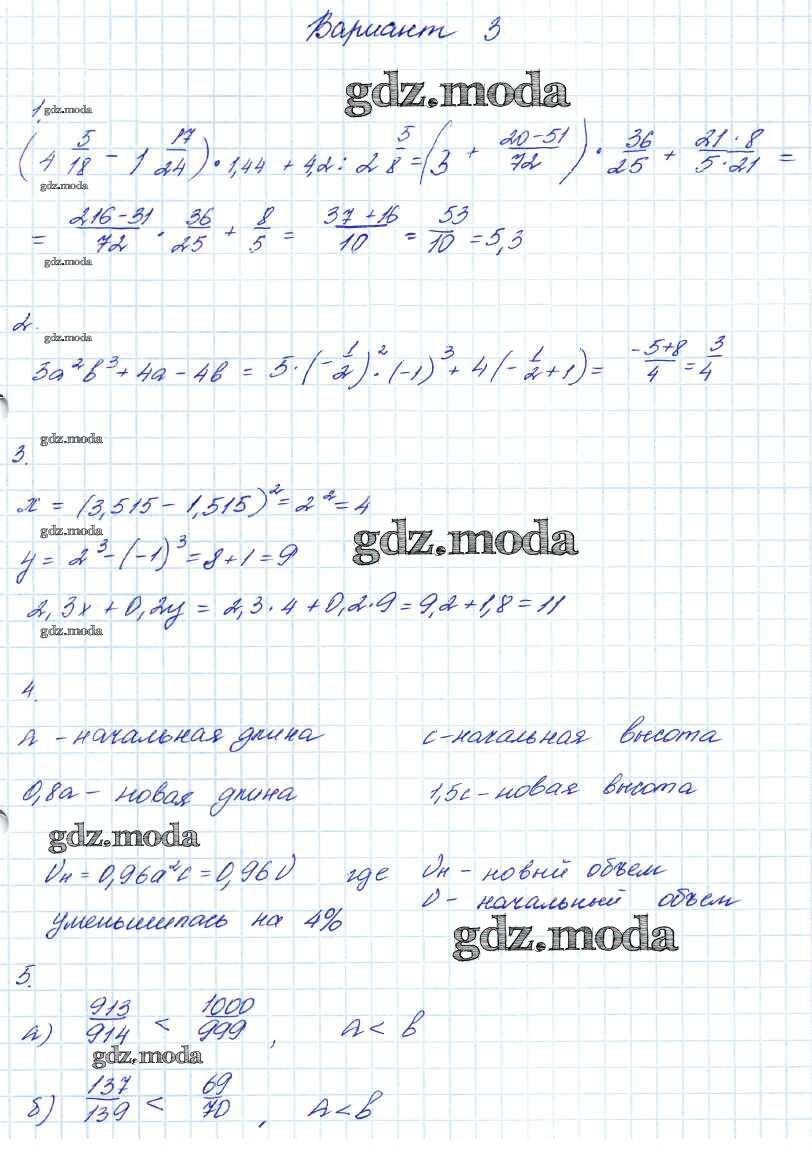 Вариант 3
gdz.moda
1. gdz.moda
(4 5/18 - 1 17/24) · 1,44 + 4,2 : 2 5/8 = (3 + (20-51)/72) · 36/25 + (21·8)/(5·21) =
gdz.moda
= (216-31)/72 · 36/25 + 8/5 = (37+16)/10 = 53/10 = 5,3
gdz.moda
2.
gdz.moda
5a²b³ + 4a - 4b = 5·(-1/2)²·(-1)³ + 4(-1/2+1) = (-5+8)/4 = 3/4
gdz.moda
3.
x = (3,515 - 1,515)² = 2² = 4
gdz.moda
gdz.moda
y = 2³ - (-1)³ = 8 + 1 = 9
2,3x + 0,2y = 2,3·4 + 0,2·9 = 9,2 + 1,8 = 11
gdz.moda
4.
a - начальная длина c - начальная высота
0,8a - новая длина 1,5c - новая высота
gdz.moda
Vн = 0,96a²c = 0,96V где Vн - новый объем
V - начальный объем
уменьшилась на 4%
gdz.moda
5.
а) 913/914 < 1000/999, a < b
gdz.moda
б) 137/139 < 69/70, a < b